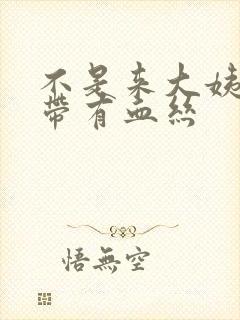 不是来大姨
帶有血丝
悟無空